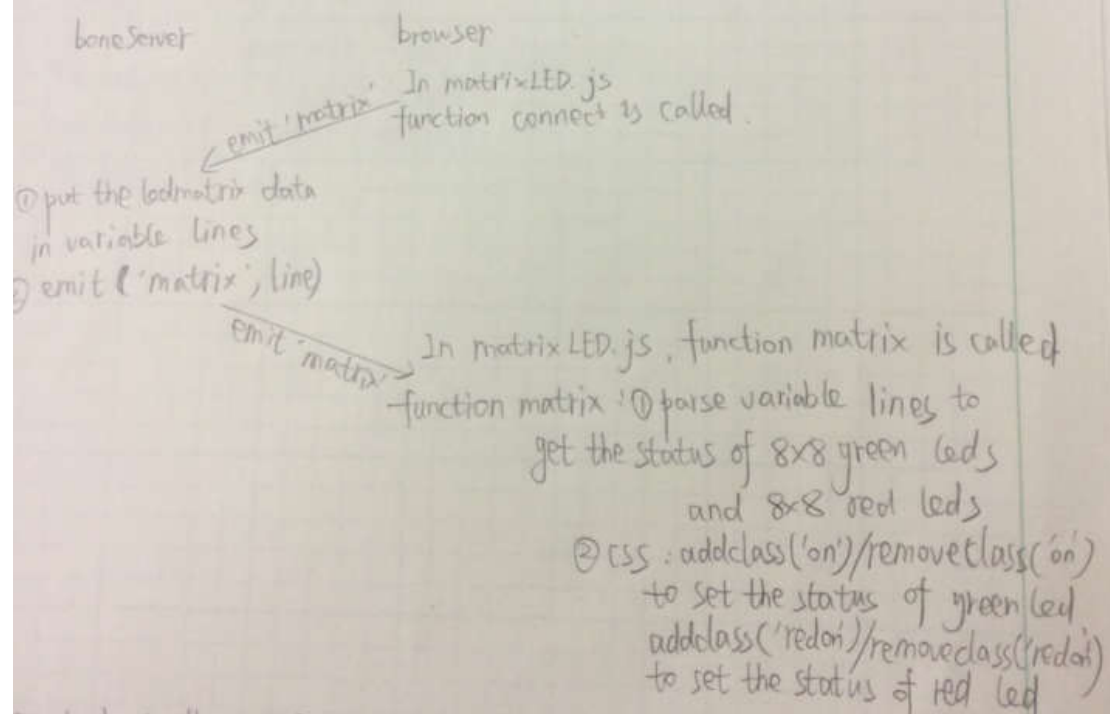 boneServer browser
In matrixLED.js
function connect is called.
emit 'matrix'
① put the ledmatrix data
in variable lines
② emit ('matrix', line)
emit 'matrix'
In matrixLED.js, function matrix is called
function matrix: ① parse variable lines to
get the status of 8x8 green leds
and 8x8 red leds
② css: addclass('on')/removeclass('on')
to set the status of green led
addclass('redon')/removeclass('redon')
to set the status of red led